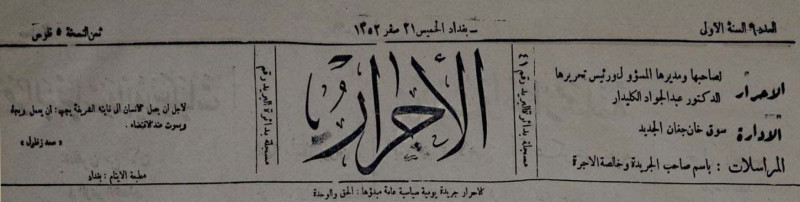 العدد ٩ السنة الاولى
ــ بغداد الخميس ٢١ صفر ١٣٥٢
ثمن النسخة ٥ فلوس
الاحرار
لصاحبها ومديرها المسؤول ورئيس تحريرها
الدكتور عبدالجواد الكليدار
الادارة سوق خان جغان الجديد
المراسلات : باسم صاحب الجريدة وخالصة الاجرة
مسجلة بدائرة البريد رقم ٤١
الأحرار
مسجلة بدائرة البريد رقم
لاجل ان يصل الانسان الى غايته الشريفة يجب: ان يعمل ويجد
ويموت عند الاقتضاء .
« سعد زغلول »
مطبعة الايتام : بغداد
الاحرار جريدة يومية سياسية عامة مبدؤها : الحق والوحدة